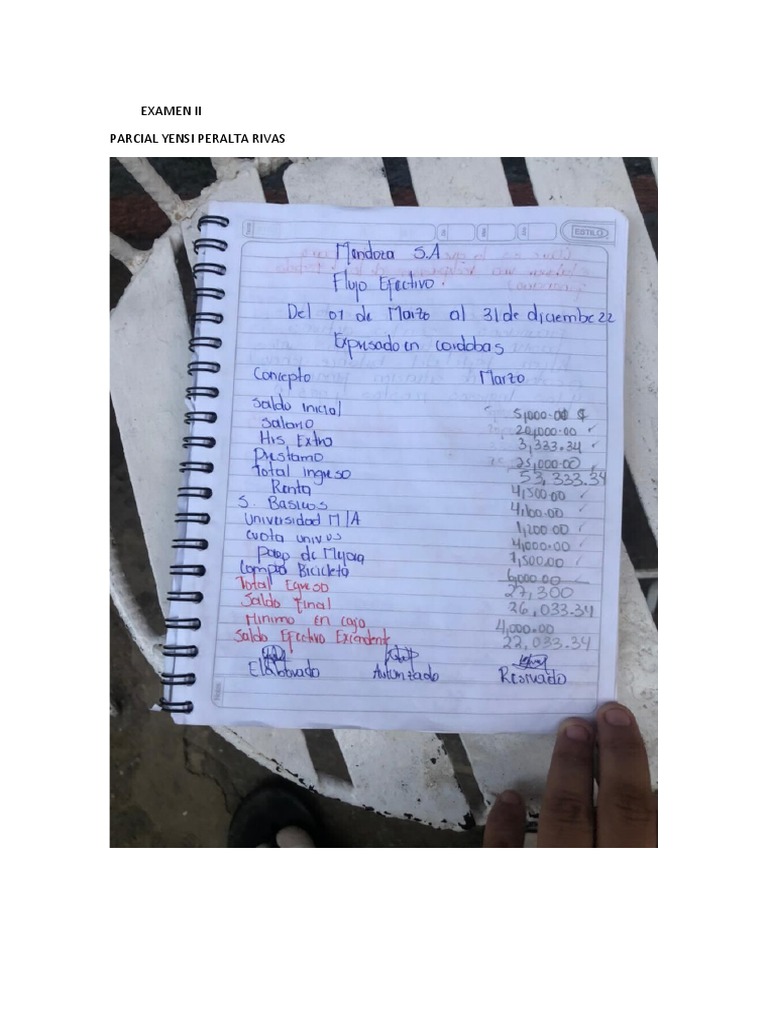 EXAMEN II
PARCIAL YENSI PERALTA RIVAS
ESTILO
Mendoza S.A
Flujo Efectivo
Del 01 de Marzo al 31 de diciembe 22
Expresado en cordobas
Concepto Marzo
Saldo inicial 5,000.00 $
Salario 20,000.00
Hrs Extra 3,333.34
Prestamo 25,000.00
Total ingreso 53,333.34
Renta 4,500.00
S. Basicos 4,100.00
Universidad M/A 1,200.00
Cuota univus 4,000.00
Pago de Mejora 7,500.00
Compra Bicicleta 6,000.00
Total Egreso 27,300
Saldo final 26,033.34
Minimo en caja 4,000.00
Saldo Efectivo Excendente 22,033.34
Elaborado Autorizado Resivado